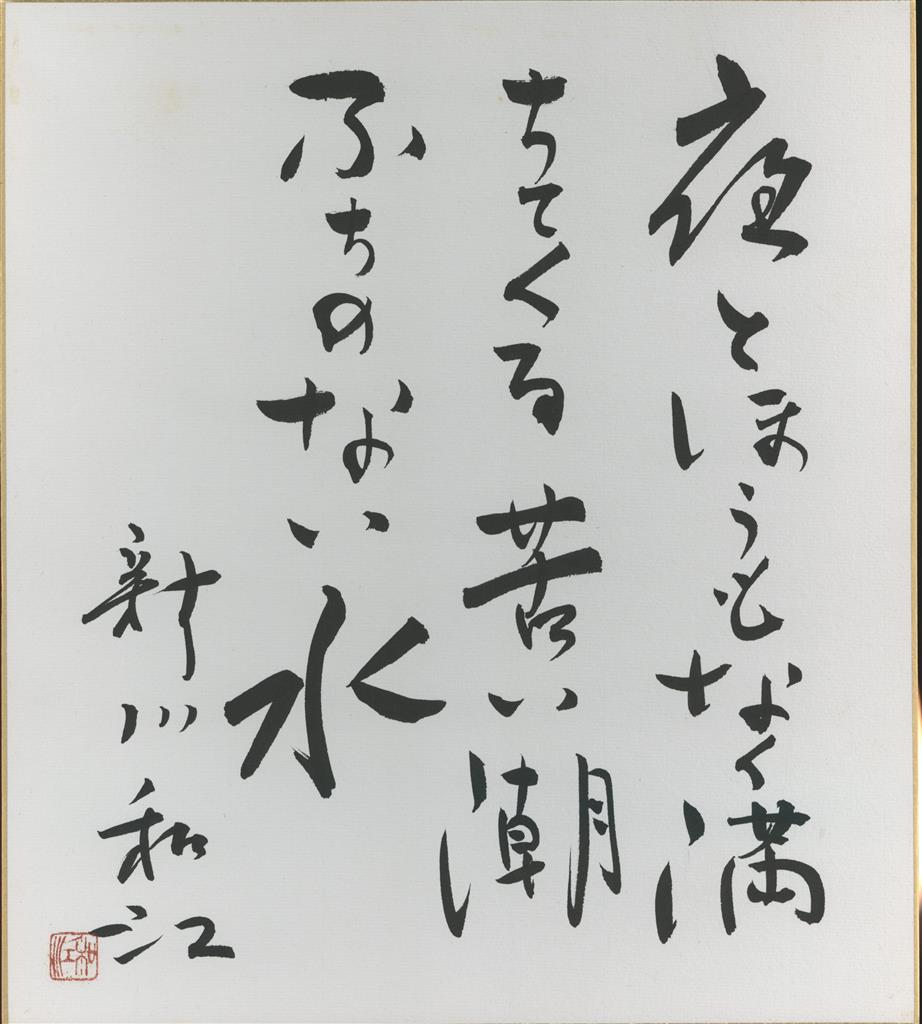 夜とほうもなく満
ちてくる苦い潮
ふちのない水
新川和江
和江